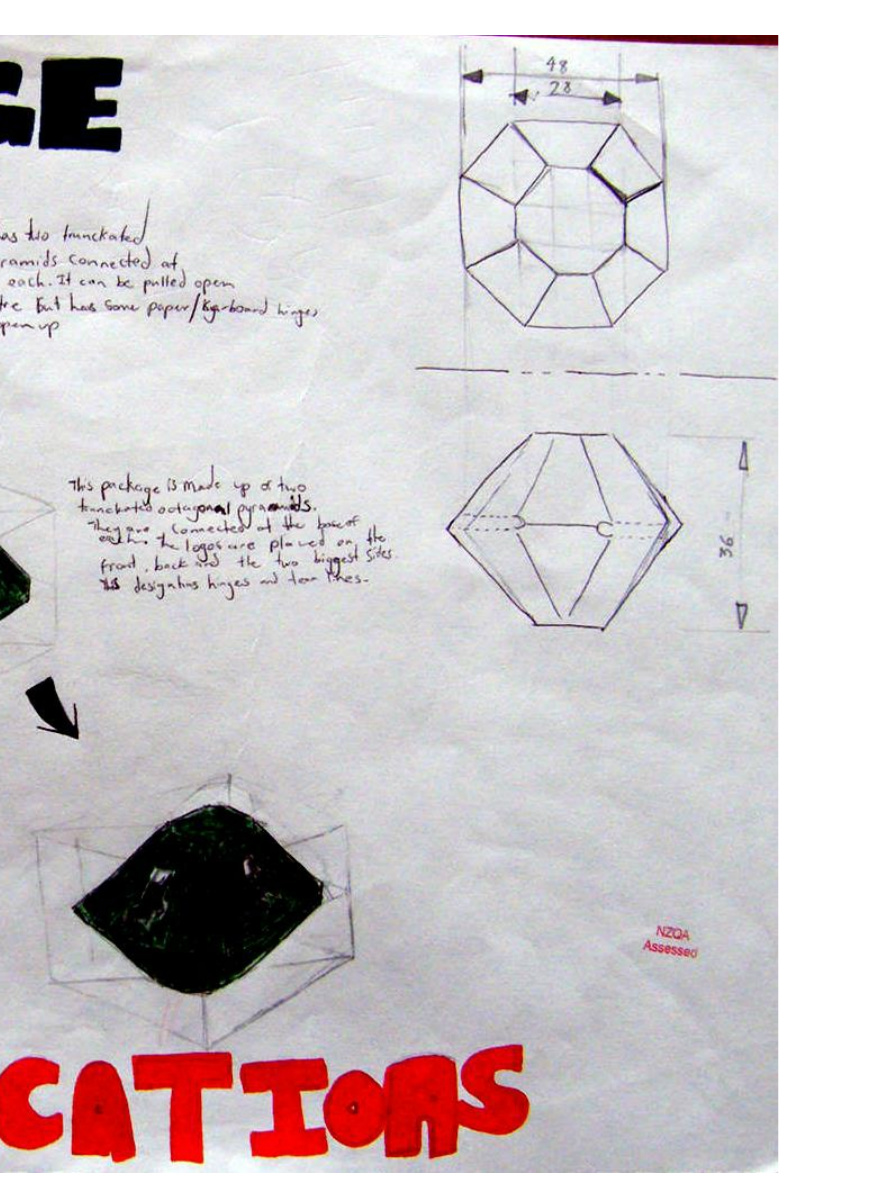 GE
48
28
as two trunckated
ramids connected at
each. It can be pulled open
tre but has some paper/ hinges
pen up
This package is made up of two
trunckated octagonal pyramids.
They are connected at the base of
each. The logos are placed on the
front, back and the two biggest sides
this design has hinges and tear lines.
36
NZQA
Assessed
CATIONS